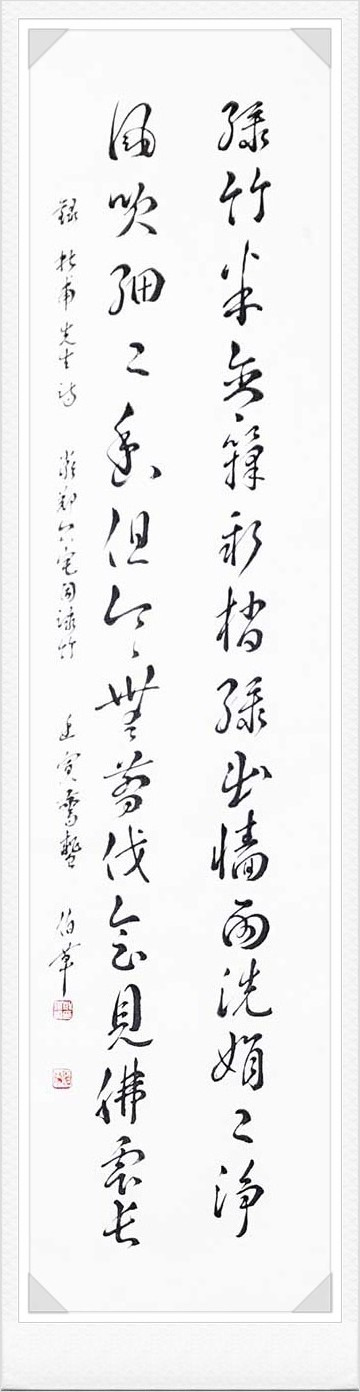 綠竹半含籜新梢綠出墻雨洗娟々淨
風吹細々香但令無剪伐會見拂雲長
錄杜甫先生詩 嚴鄭公宅同詠竹 壬寅驚蟄 伯華